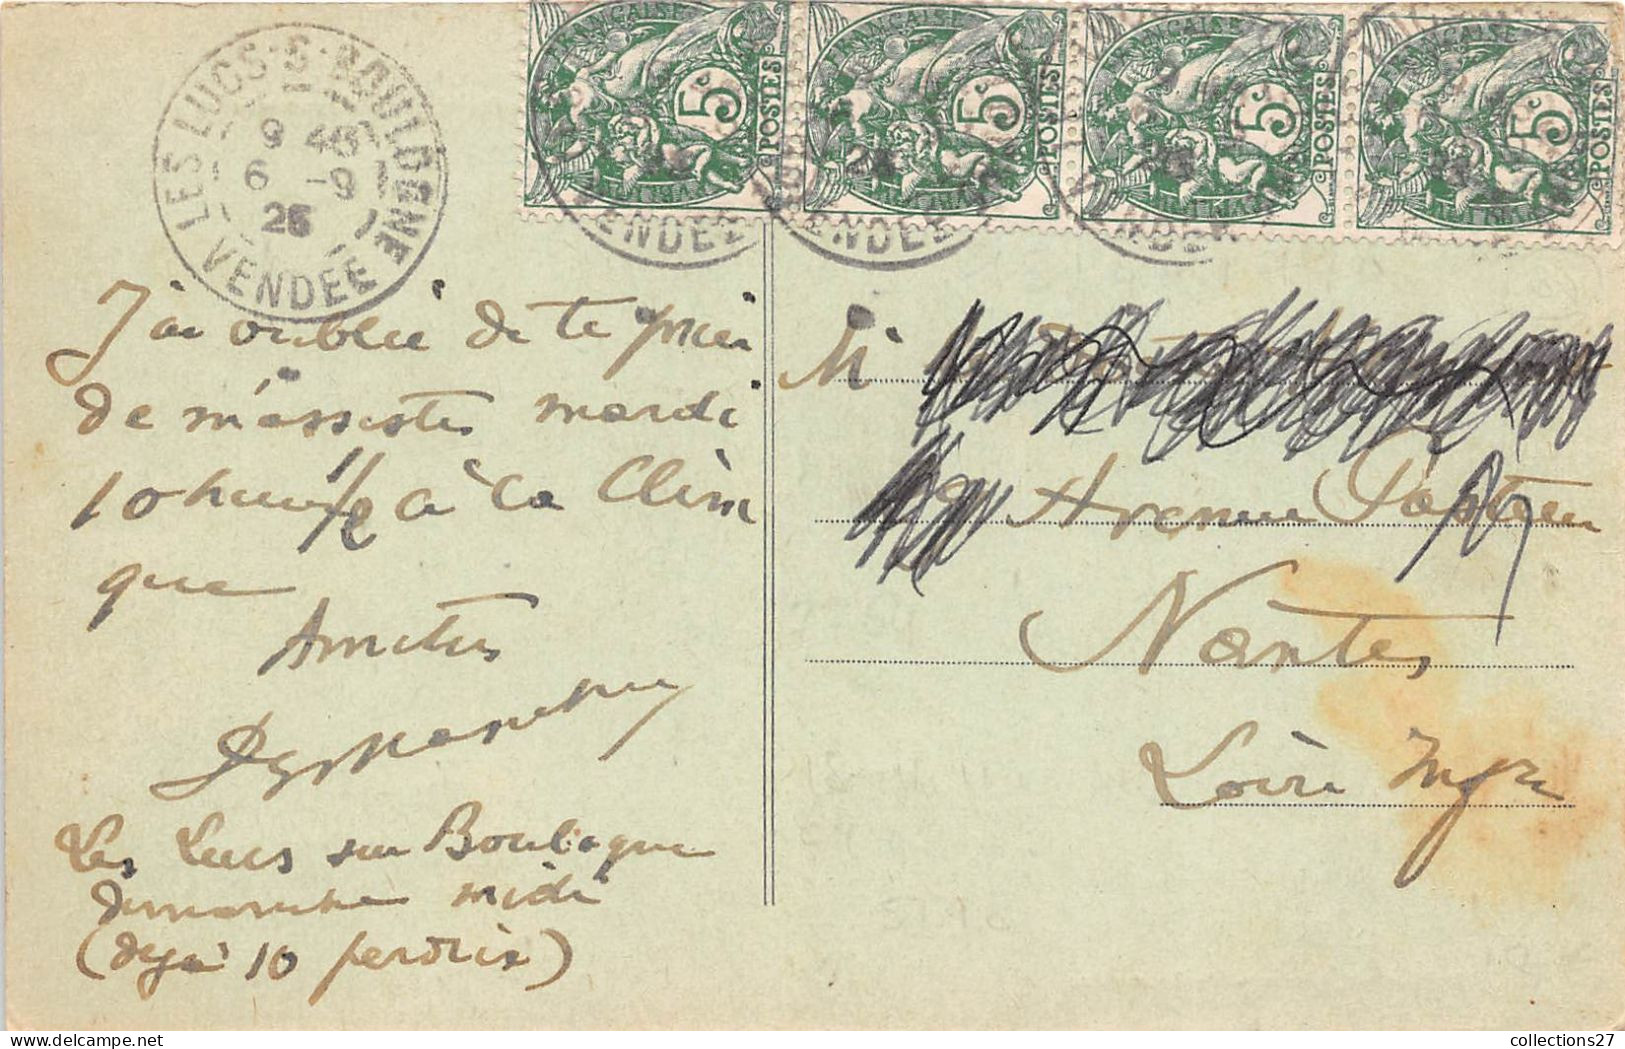 LES LUCS-S-BOULOGNE
VENDÉE
9 45
6 -9
25
FRANÇAISE 5c POSTES
FRANÇAISE 5c POSTES
FRANÇAISE 5c POSTES
FRANÇAISE 5c POSTES
VENDÉE
VENDÉE
VENDÉE
J'ai oublié de te prier
de m'assister mardi
10 heures 1/2 à la Clini
que
Amitiés
Les Lucs sur Boulogne
dimanche midi
(deja 10 perdrix)
M
Avenue Pasteur
Nantes
Loire Infre
collections27